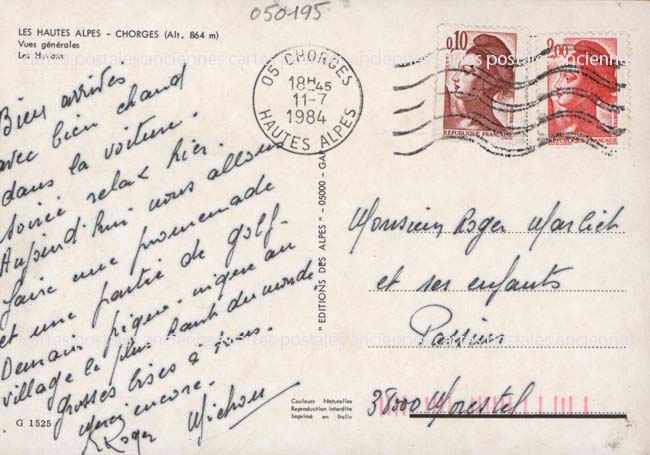 050195
LES HAUTES ALPES - CHORGES (Alt. 864 m)
Vues générales
Les
Bien arrivés
avec bien chaud
dans la voiture.
Soirée relax hier.
Aujourd'hui nous allons
faire une promenade
et une partie de golf.
Demain pique-nique au
village le plus haut du monde.
grosses bises à tous.
Merci encore.
Roger Michou
G 1525
05 CHORGES
18H45
11-7
1984
HAUTES ALPES
0,10
REPUBLIQUE FRANÇAISE
2,00
REPUBLIQUE FRANÇAISE
"EDITIONS DES ALPES" - 05000 - GAP
Monsieur Roger
et ses enfants
Passins
38500 Morestel
Couleurs Naturelles
Reproduction interdite
Imprimé en Italie
cartes postales anciennes cartes postales anciennes
cartes postales anciennes cartes postales anciennes